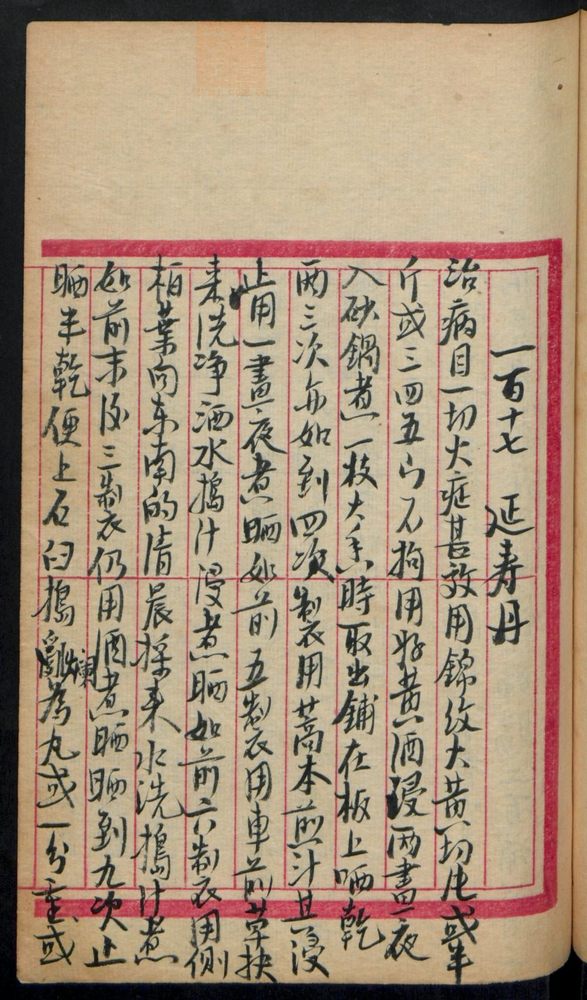 一百十七　延寿丹
治病目一切火症甚效用錦紋大黃切片或半
斤或三四五斤不拘用好黃酒浸两晝夜
入砂鍋煮一枝大香時取出鋪在板上晒乾
两三次亦如到四次製用藁本煎汁其浸
止用一晝夜煮晒如前五製用車前草抉
来洗净洒水搗汁浸煮晒如前六製用側
柏葉向东南的清晨採来水洗搗汁煮
如前末後三製仍用酒煮晒晒到九次止
晒半乾便上石臼搗爛為丸或一分重或